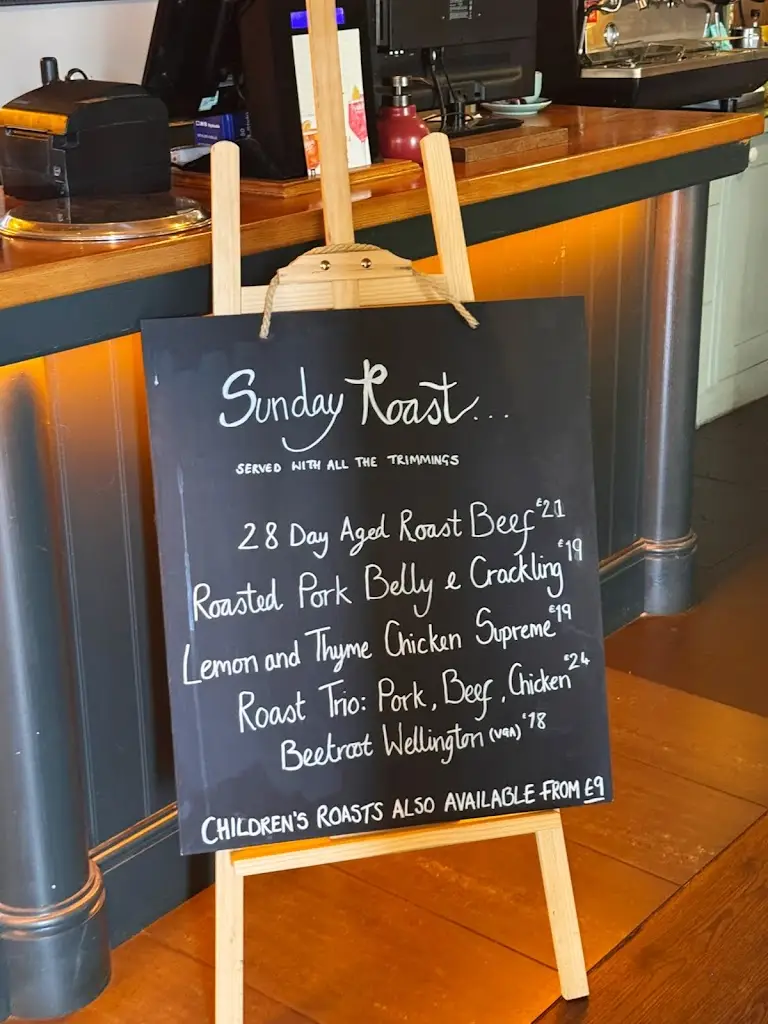 Sunday Roast...
SERVED WITH ALL THE TRIMMINGS
28 Day Aged Roast Beef £21
Roasted Pork Belly & Crackling £19
Lemon and Thyme Chicken Supreme £19
Roast Trio: Pork, Beef, Chicken £24
Beetroot Wellington (VGA) £18
CHILDREN'S ROASTS ALSO AVAILABLE FROM £9